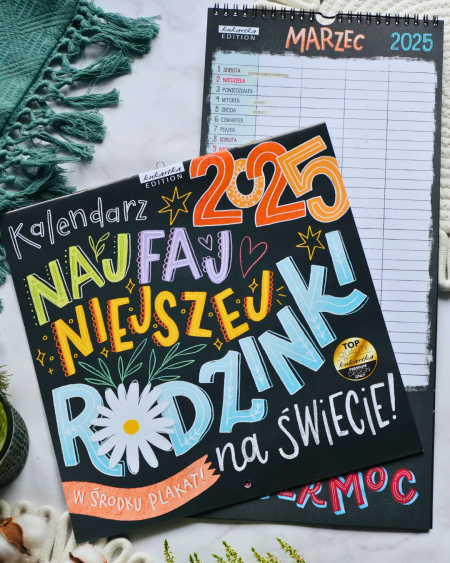 kukartka
EDITION
MARZEC 2025
1 SOBOTA
2 NIEDZIELA
3 PONIEDZIAŁEK
4 WTOREK
5 ŚRODA
6 CZWARTEK
7 PIĄTEK
8 SOBOTA
kukartka
EDITION
Kalendarz 2025
NAJFAJ
NIEJSZEJ
RODZINKI
na ŚWIECIE!
TOP
kukartka
W ŚRODKU PLAKAT!